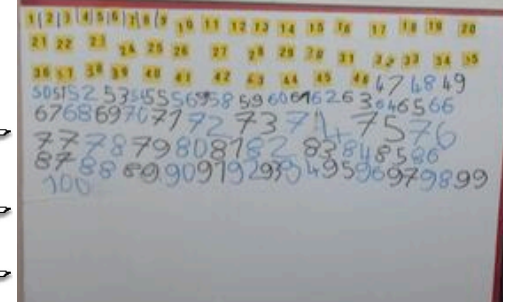 1 2 3 4 5 6 7 8 9 10 11 12 13 14 15 16 17 18 19 20
21 22 23 24 25 26 27 28 29 30 31 32 33 34 35
36 37 38 39 40 41 42 43 44 45 46 47 48 49
50 51 52 53 54 55 56 57 58 59 60 61 62 63 64 65 66
67 68 69 70 71 72 73 74 75 76
77 78 79 80 81 82 83 84 85 86
87 88 89 90 91 92 93 94 95 96 97 98 99
100